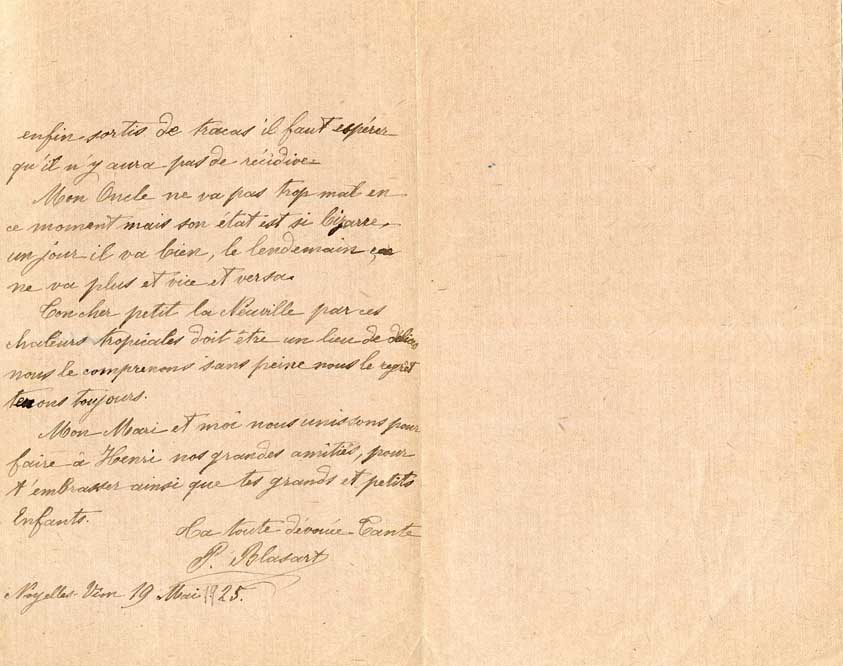 enfin sortis de tracas il faut espérer
qu'il n'y aura pas de récidive.
Mon Oncle ne va pas trop mal en
ce moment mais son état est si bizarre,
un jour il va bien, le lendemain ça
ne va plus et vice et versa.
Ton cher petit la Neuville par ces
chaleurs tropicales doit être un lieu de délices
nous le comprenons sans peine nous le regret
terons toujours.
Mon Mari et moi nous unissons pour
faire à Henri nos grandes amitiés, pour
t'embrasser ainsi que tes grands et petits
Enfants.
Ta toute dévouée Tante
P. Blasart
Noyelles-Vion 19 Mai 1925.